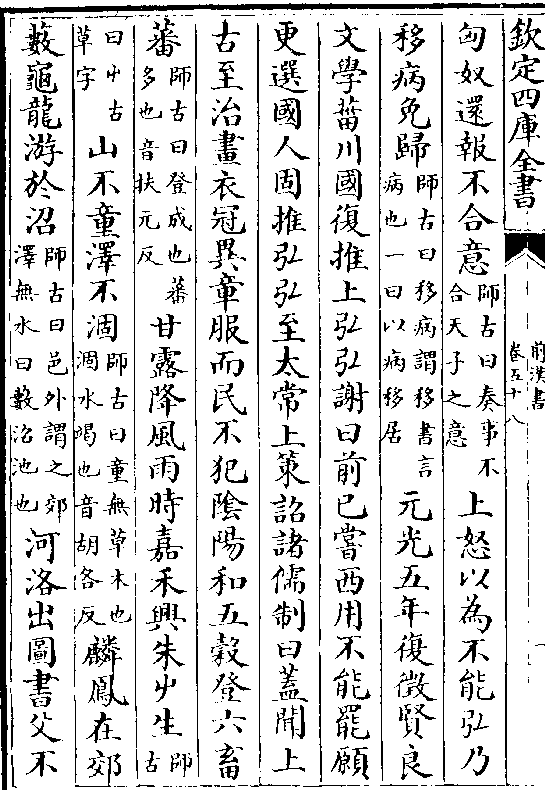 欽定四庫全書
前漢書
卷五十八
一
匈奴還報不合意師古曰奏事不合天子之意上怒以為不能弘乃
移病免歸師古曰移病謂移書言病也一曰以病移居元光五年復徵賢良
文學菑川國復推上弘弘謝曰前已嘗西用不能罷願
更選國人固推弘弘至太常上策詔諸儒制曰蓋聞上
古至治畫衣冠異章服而民不犯陰陽和五穀登六畜
蕃師古曰登成也蕃多也音扶元反甘露降風雨時嘉禾興朱屮生師古
曰屮古草字山不童澤不涸師古曰童無草木也涸水竭也音胡各反麟鳳在郊
藪龜龍游於沼師古曰邑外謂之郊澤無水曰藪沼池也河洛出圖書父不